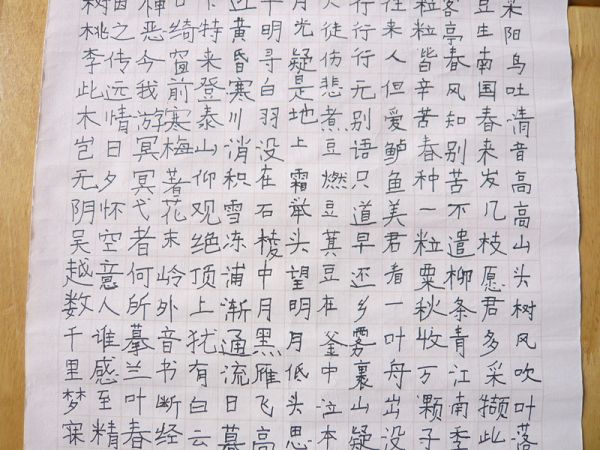 阳鸟吐清音高高山头树风吹叶落
豆生南国春来发几枝愿君多采撷此
客亭春风知别苦不遣柳条青江南季
粒粒皆辛苦春种一粒粟秋收万颗子
往来人但爱鲈鱼美君看一叶舟出没
行行行无别语只道早还乡雾裹山疑
徒伤悲煮豆燃豆萁豆在釜中泣本
月光疑是地上霜举头望明月低头思
明寻白羽没在石棱中月黑雁飞高
黄昏寒川消积雪冻浦渐通流日暮
特来登泰山仰观绝顶上犹有白云
绮窗前寒梅著花未岭外音书断经
神恶今我游冥冥弋者何所摹兰叶春
之传远情日夕怀空意人谁感至精
树桃李此木岂无阴吴越数千里梦寐